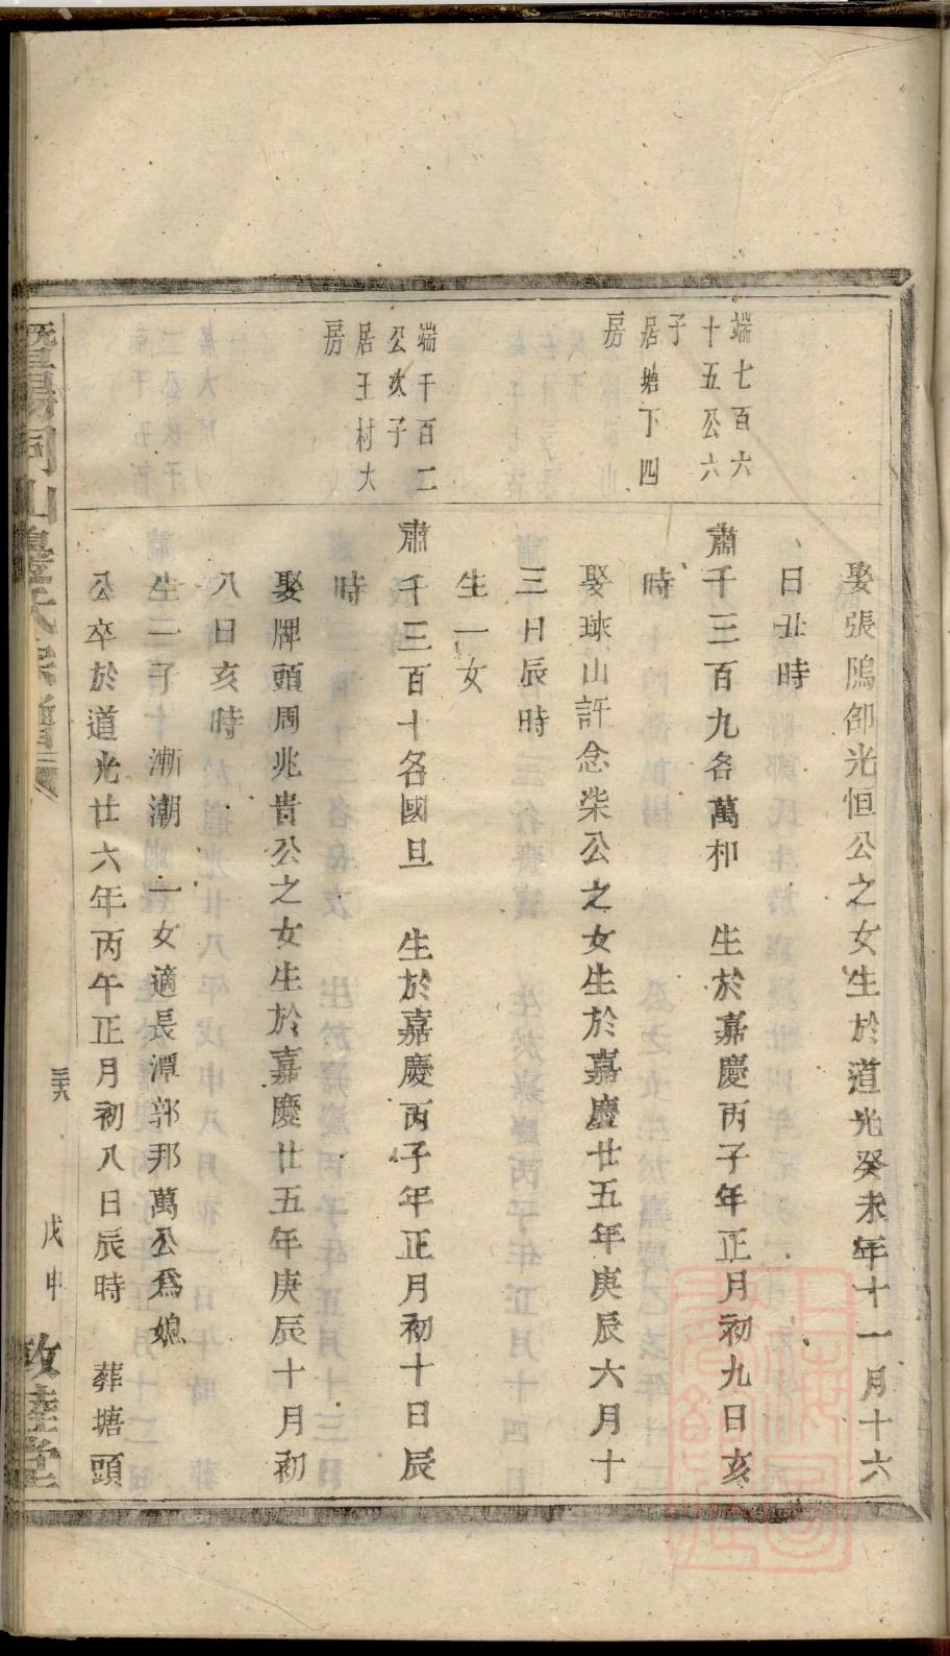 娶張隖御光恒公之女生於道光癸未年十一月十六
日丑時
端七百六
十五公六
子
居塘下四
房
肅千三百九名萬和 生於嘉慶丙子年正月初九日亥
時
娶球山許念柴公之女生於嘉慶廿五年庚辰六月十
三日辰時
生一女
端千百二
公次子
居王村大
房
肅千三百十名國旦 生於嘉慶丙子年正月初十日辰
時
娶牌頭周兆貴公之女生於嘉慶廿五年庚辰十月初
八日亥時
生二子 漸潮 一女適長潭郭邦萬公爲媳
公卒於道光廿六年丙午正月初八日辰時 葬塘頭
暨陽同山邊氏宗譜
三六
戊申
敦睦堂